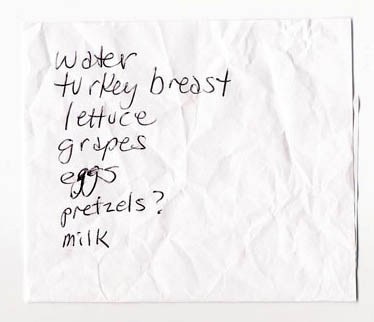 water
turkey breast
lettuce
grapes
eggs
pretzels?
milk